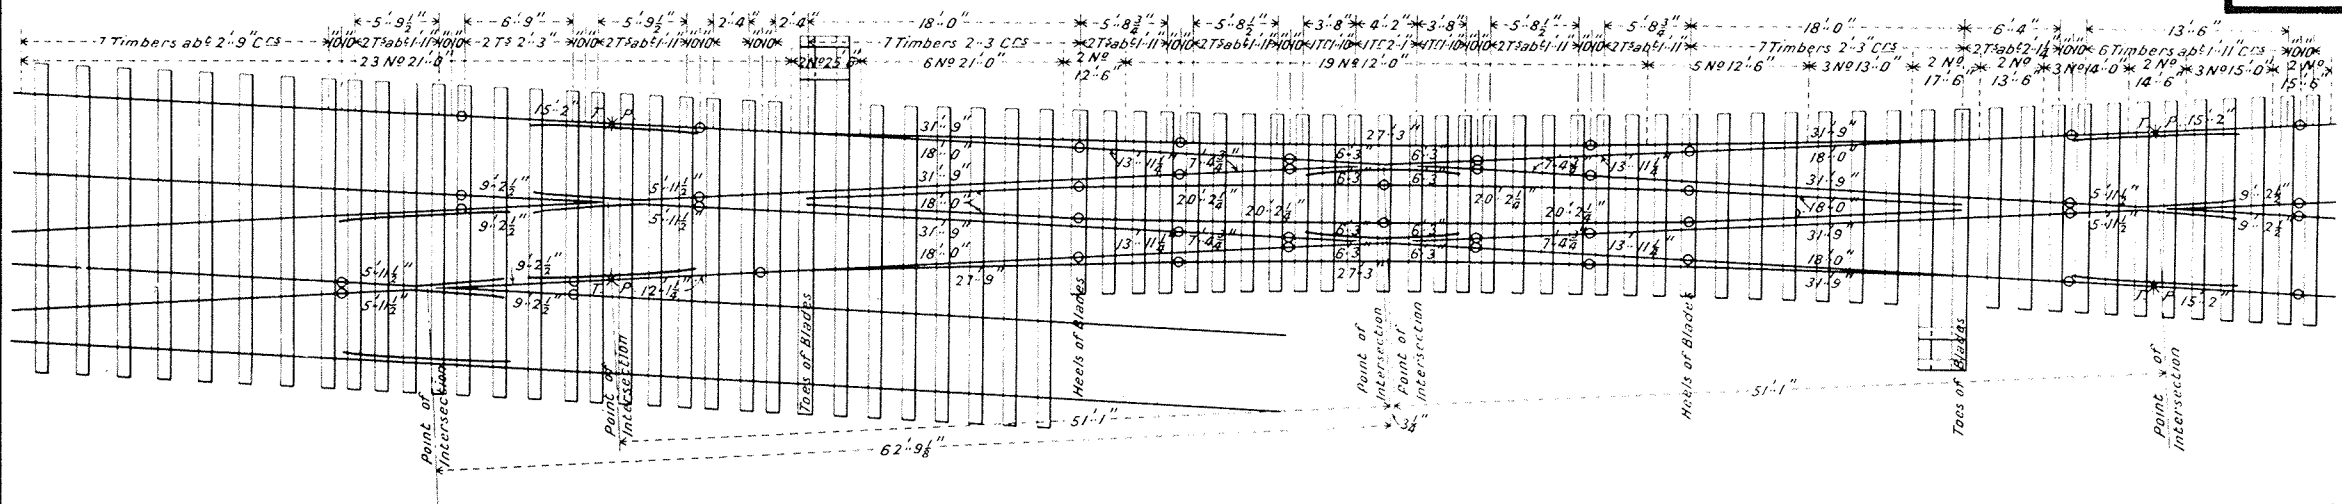 5'·9½" 6'·9" 5'·9½" 2'·4" 2'·4" 18'·0" 5'·8¾" 5'·8½" 3'·8" 4'·2" 3'·8" 5'·8½" 5'·8¾" 18'·0" 6'·4" 13'·6"
7 Timbers abt 2'·9" Crs 10 10 2Ts abt 1'·11" 10 10 2Ts 2'·3" 10 10 2Ts abt 1'·11" 10 10 10 10 7 Timbers 2'·3 Crs 2Ts abt 1'·11" 10 10 2Ts abt 1'·11" 10 10 1T 1'·10" 1T 2'·1" 1T 1'·10" 10 10 2Ts abt 1'·11" 10 10 2Ts abt 1'·11" 7 Timbers 2'·3" Crs 10 10 6 Timbers abt 1'·11" Crs 10 10
23 Nº 21'·0" 2 Nº 25'·6 6 Nº 21'·0" 2 Nº 12'·6" 19 Nº 12'·0" 5 Nº 12'·6" 3 Nº 13'·0" 2 Nº 17'·6" 2 Nº 13'·6" 3 Nº 14'·0" 2 Nº 14'·6" 3 Nº 15'·0" 2 Nº 15'·6"
15'·2" T. P. 31'·9" 27'·3" 31'·9" T. P. 15'·2"
18'·0" 13'·11¼" 7'·4¾" 6'·3" 6'·3" 7'·4¾" 13'·11¼" 18'·0"
9'·2½" 5'·11½" 31'·9" 6'·3" 6'·3" 31'·9" 5'·11½" 9'·2½"
9'·2½" 5'·11½" 18'·0" 20'·2¼" 20'·2¼" 20'·2¼" 20'·2¼" 18'·0" 5'·11½" 9'·2½"
31'·9" 13'·11¼" 7'·4¾" 6'·3" 6'·3" 7'·4¾" 13'·11¼" 31'·9"
5'·11½" 9'·2½" 18'·0" 6'·3" 6'·3" 18'·0"
5'·11½" 9'·2½" T. P. 12'·1¼" 27'·9" 27'·3" 31'·9" T. P. 15'·2"
Point of Intersection
Point of Intersection
Toes of Blades
Heels of Blades
Point of Intersection
Point of Intersection
Heels of Blades
Toes of Blades
Point of Intersection
51'·1" 3¼" 51'·1"
62'·9⅛"